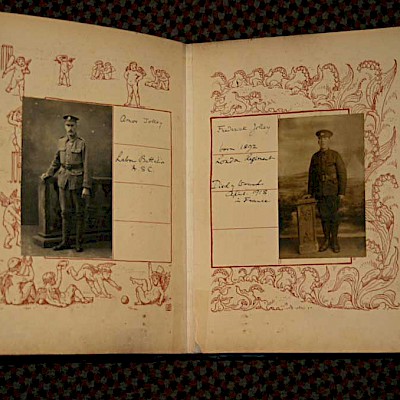 Amos Tolley
Labor Battalion
A S C
Frederick Tolley
born 1892
London Regiment
Died of Wounds
April 1918
in France